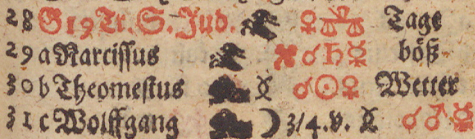 28 G 19 Tr. S. Jud. ♀ ♎ Tage
29 a Narcissus ☌ ♄ ☿ böß
30 b Theomestus ☌ ☉ ♀ Wetter
31 c Wolffgang ☽ 3/4. v. ☌ ♂ ☿